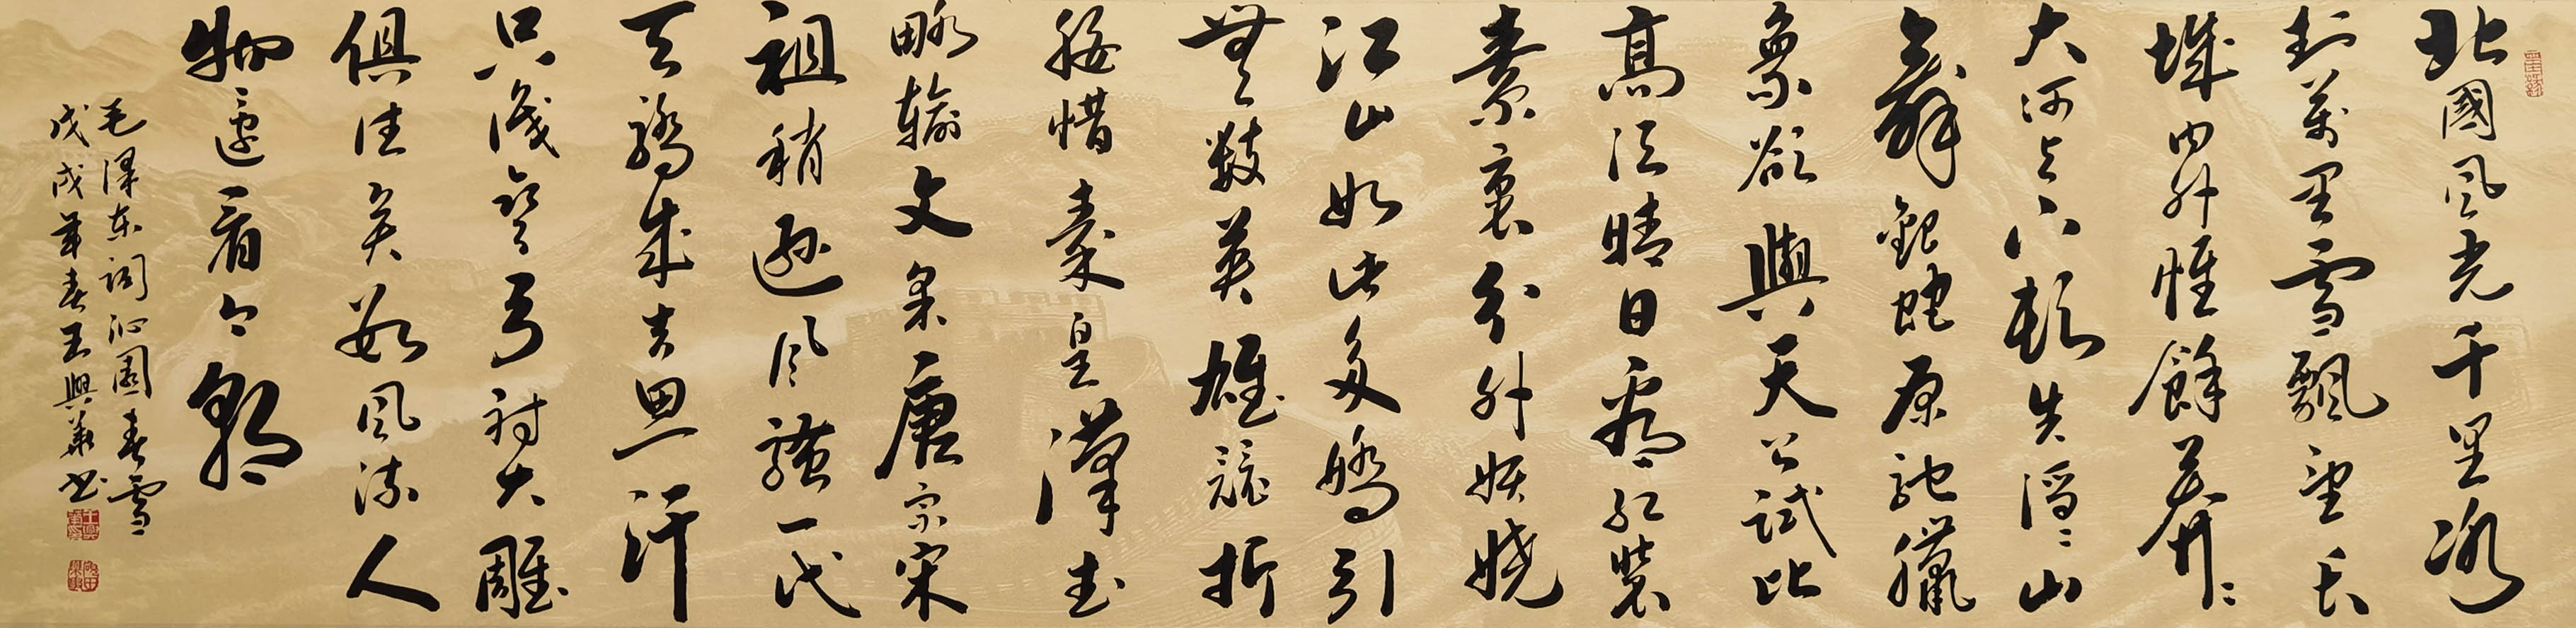 北國風光千里冰
封萬里雪飄望長
城內外惟餘莽〻
大河上下頓失滔〻山
舞銀蛇原馳臘
象欲與天公試比
高須晴日看紅裝
素裹分外妖嬈
江山如此多嬌引
無數英雄競折
腰惜秦皇漢武
略輸文采唐宗宋
祖稍遜風騷一代
天驕成吉思汗
只識彎弓射大雕
俱往矣數風流人
物還看今朝
毛澤东词沁園春雪
戊戌年春王興華书